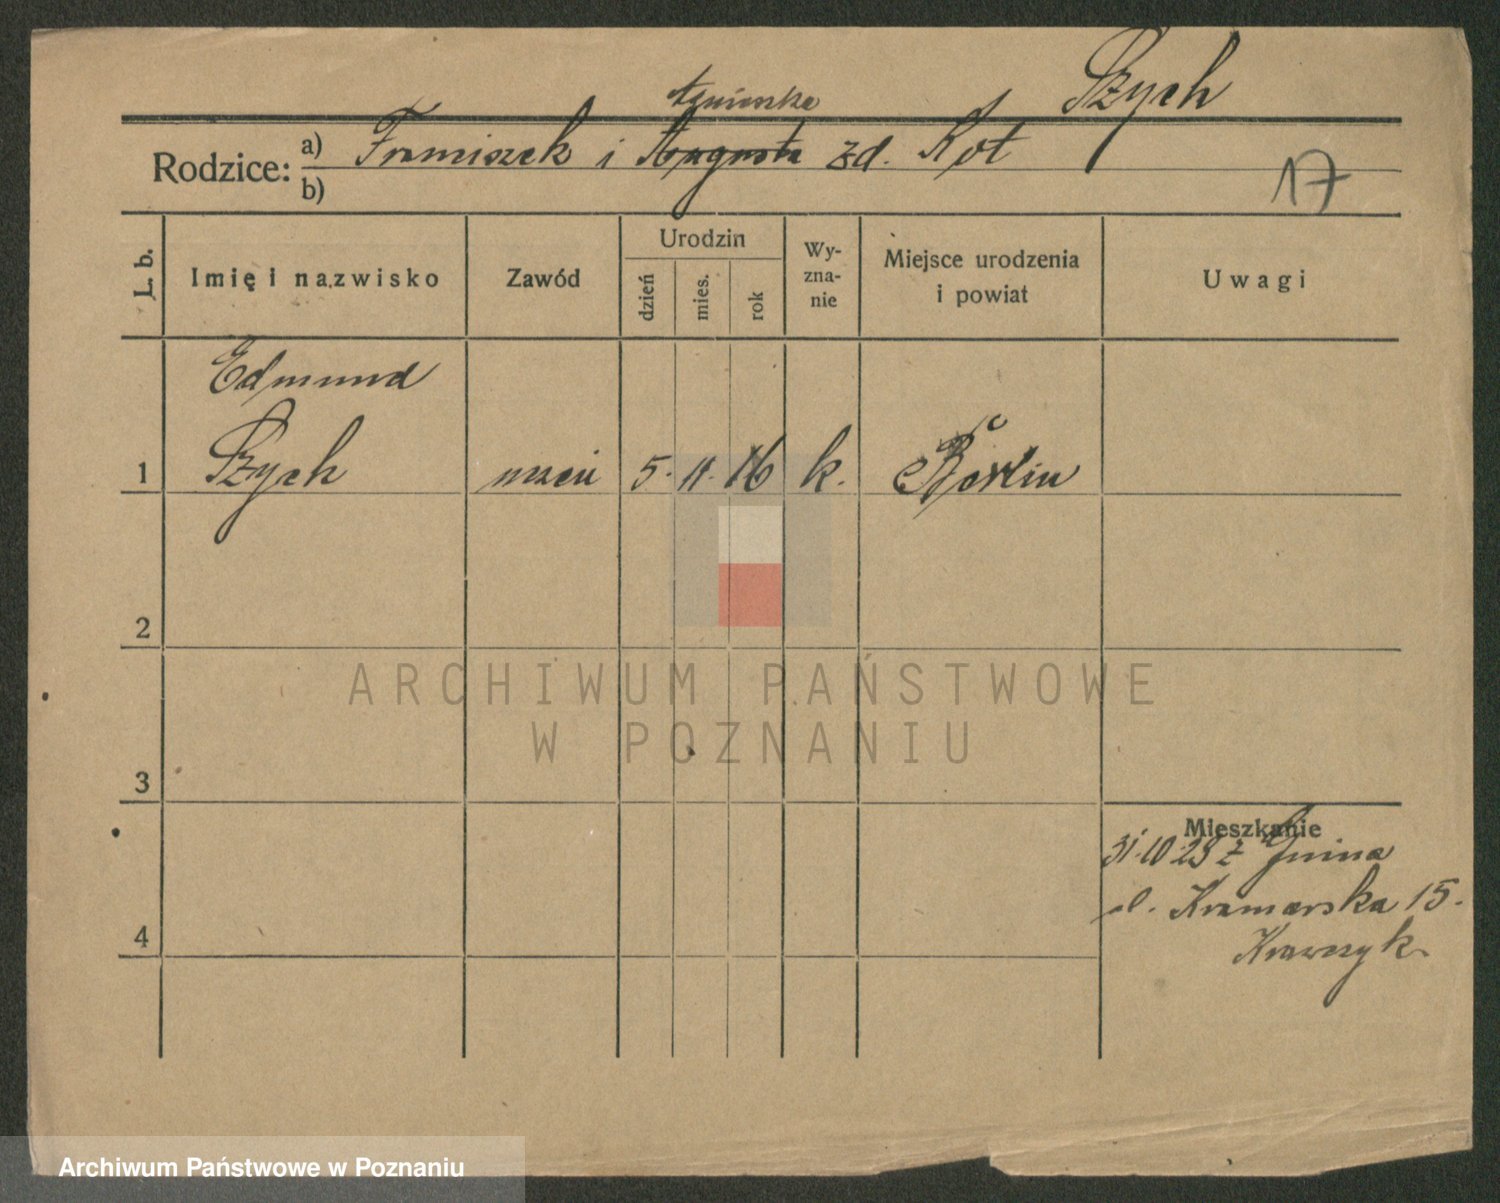 Szych
Agnieszka
Rodzice: a) Franciszek i Augusta zd. Kot
b)
17
L. b.
Imię i nazwisko
Zawód
Urodzin
dzień
mies.
rok
Wy-
zna-
nie
Miejsce urodzenia
i powiat
Uwagi
Edmund
1 Szych uczeń 5. 11. 16 k. Berlin
2
ARCHIWUM PAŃSTWOWE
W POZNANIU
3
Mieszkanie
31.10.28 z Gnina
ul. Kramarska 15.
Krawczyk
4
Archiwum Państwowe w Poznaniu